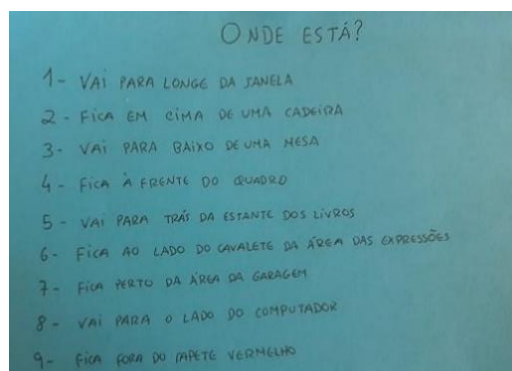 ONDE ESTÁ?
1- VAI PARA LONGE DA JANELA
2- FICA EM CIMA DE UMA CADEIRA
3- VAI PARA BAIXO DE UMA MESA
4- FICA À FRENTE DO QUADRO
5- VAI PARA TRÁS DA ESTANTE DOS LIVROS
6- FICA AO LADO DO CAVALETE DA ÁREA DAS EXPRESSÕES
7- FICA PERTO DA ÁREA DA GARAGEM
8- VAI PARA O LADO DO COMPUTADOR
9- FICA FORA DO TAPETE VERMELHO